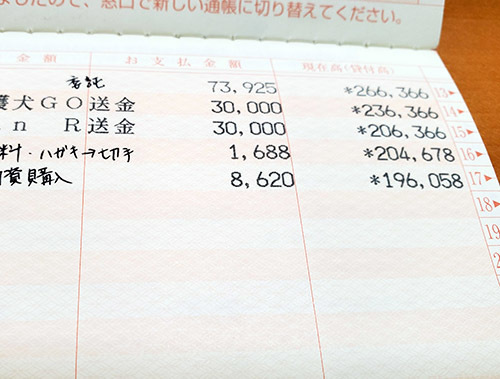 ましたので、窓口で新しい通帳に切り替えてください。
金額 お支払金額 現在高(貸付高)
委託 73,925 *266,366 13▶
護犬GO送金 30,000 *236,366 14▶
n R送金 30,000 *206,366 15▶
料・ハガキ→切手 1,688 *204,678 16▶
購入 8,620 *196,058 17▶
18▶
19
2